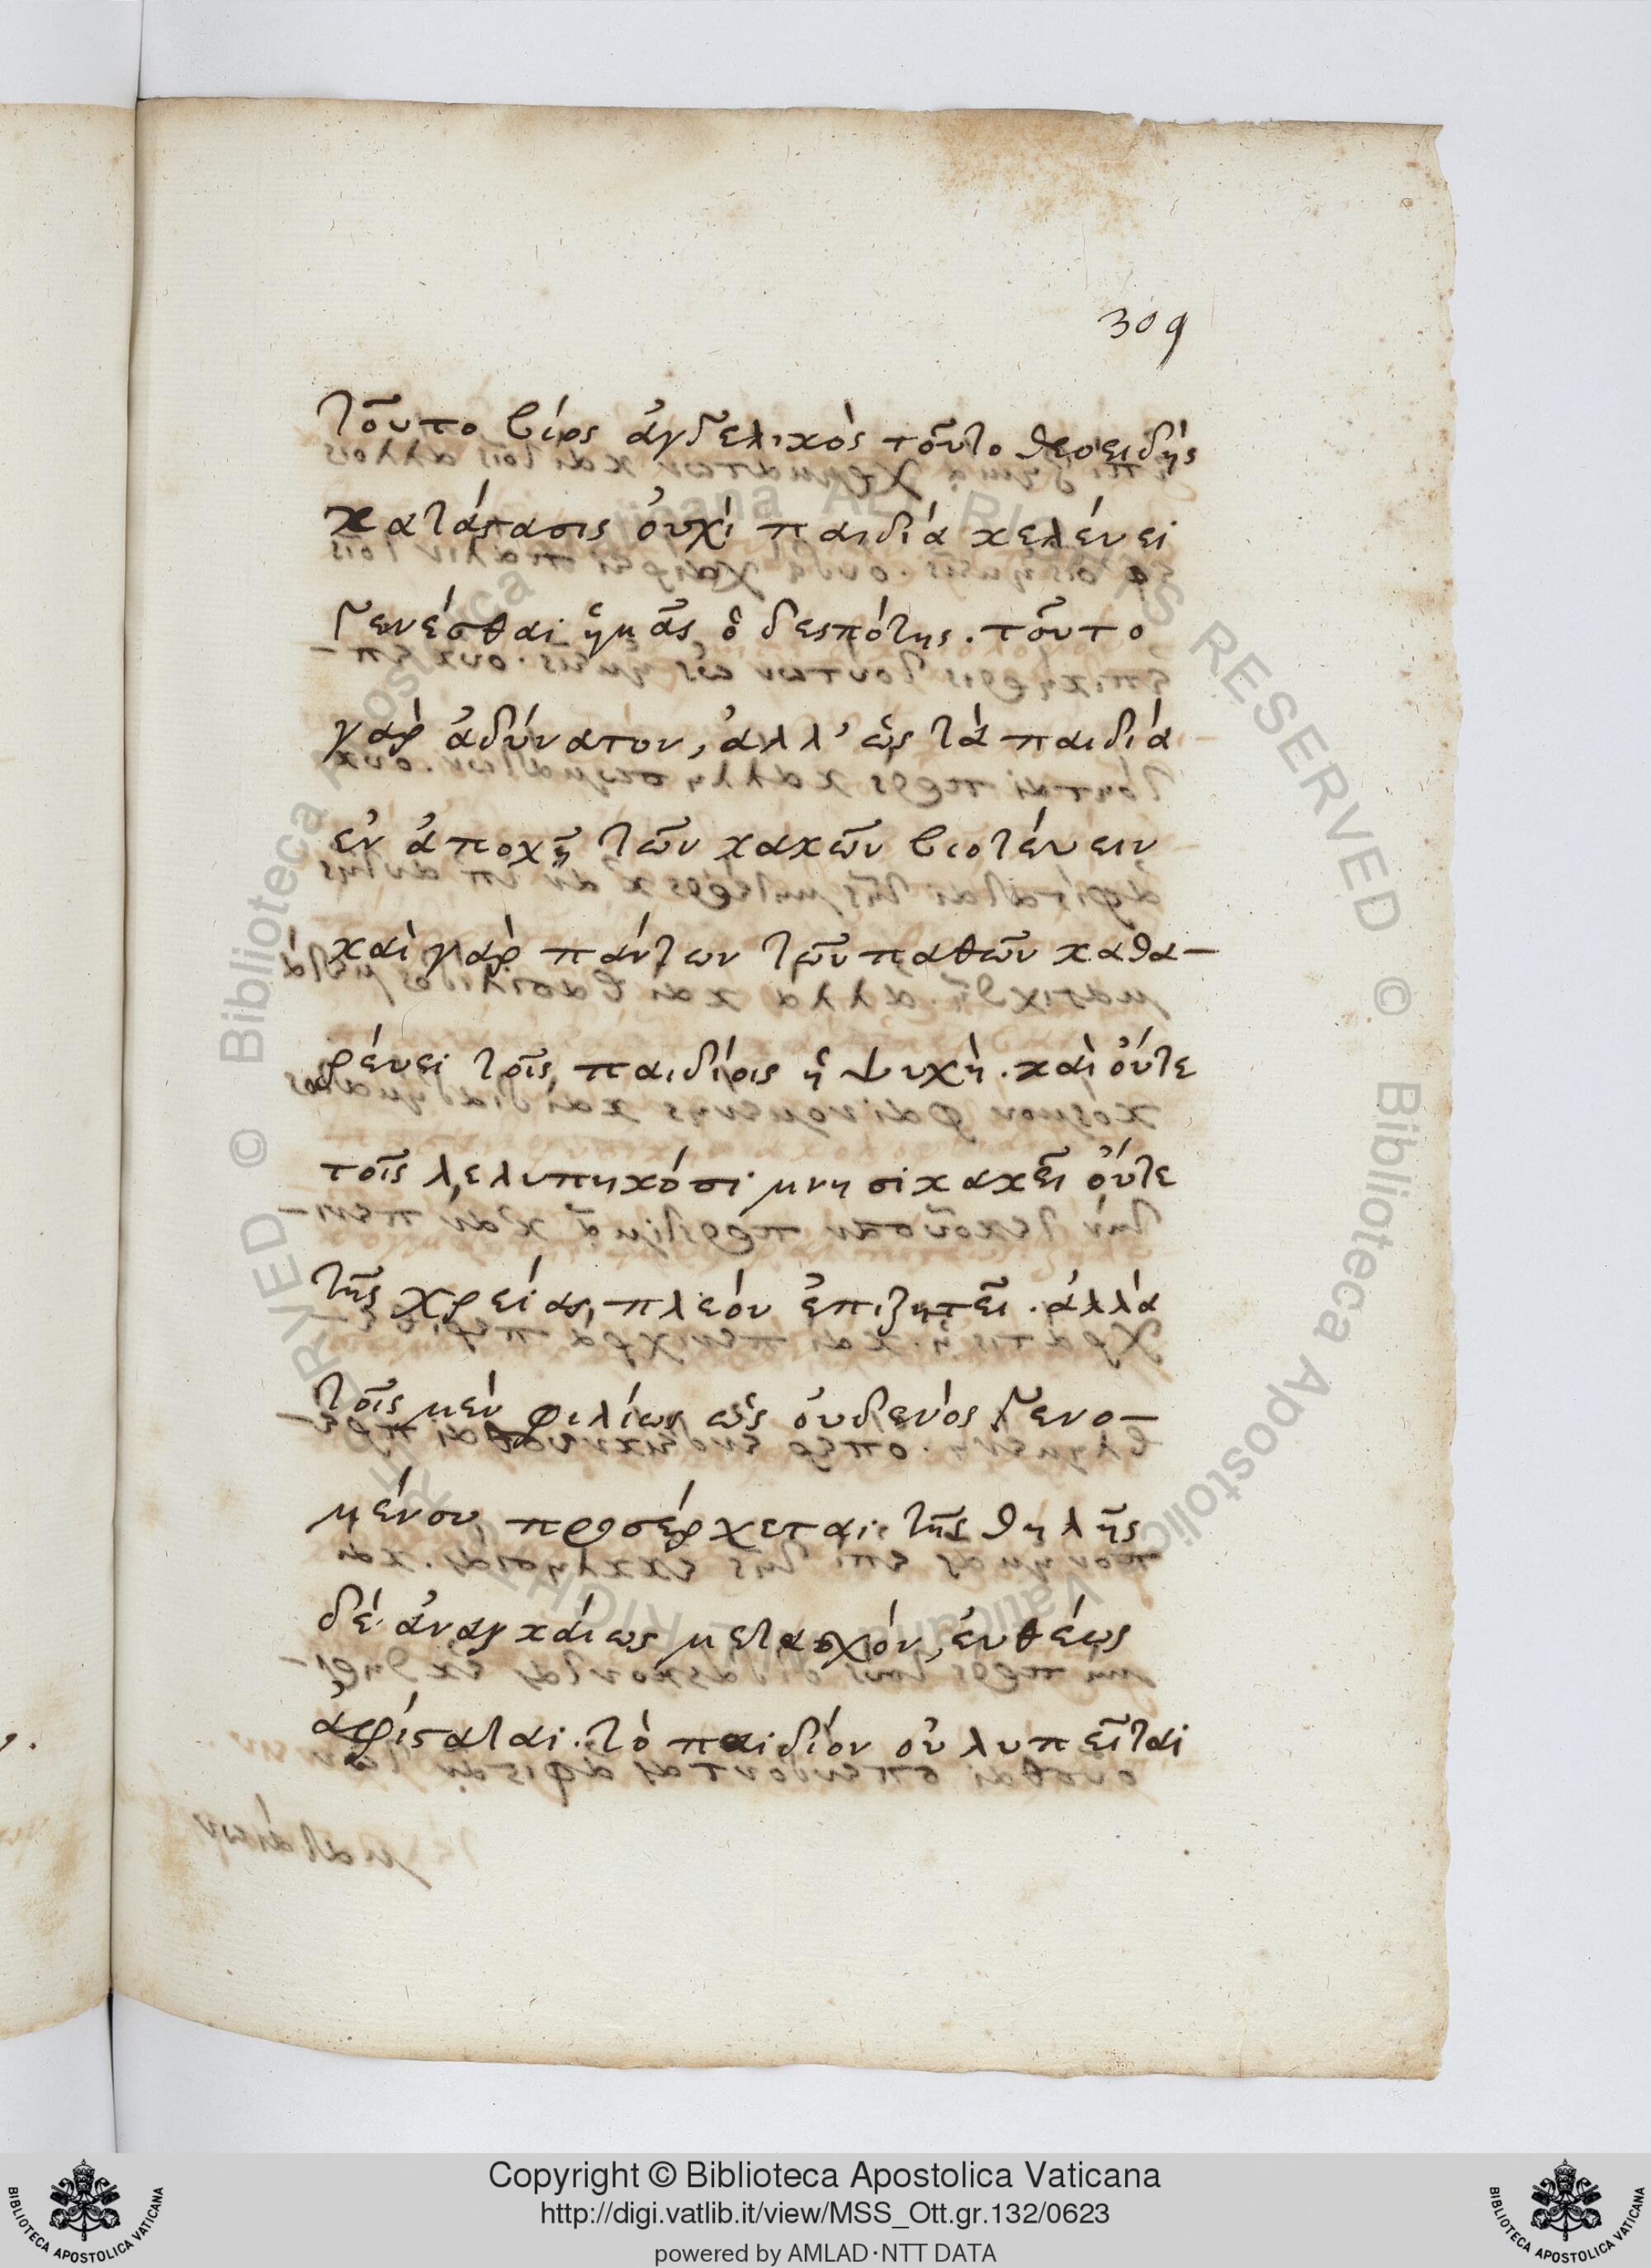 309
τοῦτο βίος ἀγγελικὸς τοῦτο θεοειδὴς
κατάστασις οὐχὶ παιδία κελέυει
γενέσθαι ἡμᾶς ὁ δεσπότης. τοῦτο
γὰρ ἀδύνατον, ἀλλ' ὡς τὰ παιδία
ἐν ἀποχῇ τῶν κακῶν βιοτέυειν
καὶ γὰρ πάντων τῶν παθῶν καθα-
ρέυει τοῖς παιδίοις ἡ ψυχὴ. καὶ ὄυτε
τοῖς λελυπηκόσι μνησικακεῖ ὄυτε
τῆς χρείας, πλεόν ἐπιζητεῖ. ἀλλὰ
τοῖς μὲν φιλίως ὡς ὀυδενὸς γενο-
μένου προσέρχεται. τῆς θηλῆς
δὲ ἀναγκάιως μετασχόν, ἐυθέως
ἀφίσταται. τὸ παιδίον οὐ λυπεῖται
Copyright © Biblioteca Apostolica Vaticana
http://digi.vatlib.it/view/MSS_Ott.gr.132/0623
powered by AMLAD·NTT DATA
BIBLIOTECA APOSTOLICA VATICANA
BIBLIOTECA APOSTOLICA VATICANA